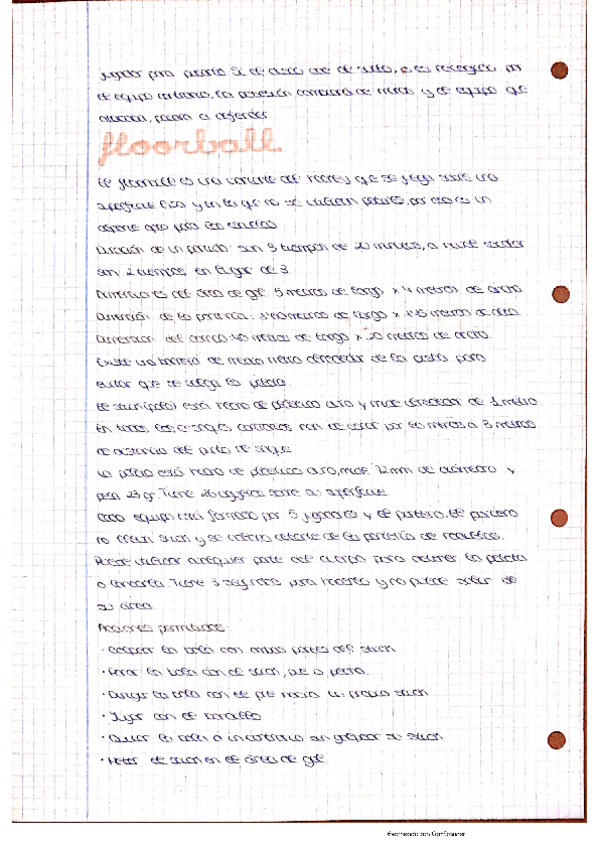 jugador para ponerlo. Si el disco cae al suelo, o es recogido por
el equipo contrario, la posesión cambiará de manos y el equipo que
atacaba, pasará a defender
floorball
El floorball es una variante del hockey que se juega sobre una
superficie lisa y en la que no se utilizan patines, por eso es un
deporte apto para las escuelas
Duración de un partido: son 3 tiempos de 20 minutos, a nivel escolar
son 2 tiempos en lugar de 3.
Dimensiones del área de gol: 5 metros de largo x 4 metros de ancho
Dimensión de la portería: metros de largo x metros de alto.
Dimensión del campo: 40 metros de largo x 20 metros de ancho.
Existe una barrera de medio metro alrededor de la pista para
evitar que se salga la pelota.
El stick (palo) está hecho de plástico duro y mide alrededor de 1 metro
En todos los saques, contrarios han de estar por lo menos a 3 metros
de distancia del punto de saque
La pelota está hecha de plástico duro, mide 72mm de diámetro y
pesa 23 gr. Tiene 26 agujeros sobre su superficie.
Cada equipo está formado por 5 jugadores y el portero. El portero
no lleva stick y se coloca delante de la portería de rodillas.
Puede utilizar cualquier parte del cuerpo para detener la pelota
o lanzarla. Tiene 3 segundos para hacerlo y no puede salir de
su área
Acciones permitidas:
· Golpear la bola con ambas partes del stick
· Parar la bola con el stick, pie o pecho.
· Dirigir la bola con el pie hacia tu propio stick
· Jugar con el
· Quitar la bola a un contrario sin golpear su stick
· Meter el stick en el área de gol
Escaneado con CamScanner